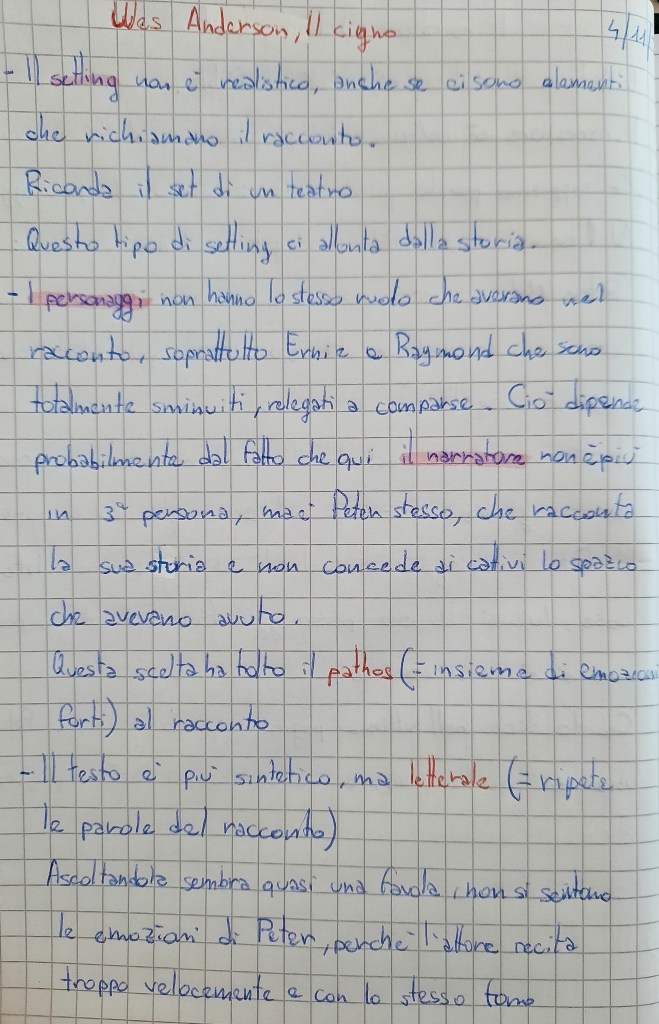 Wes Anderson, Il cigno
4/11
- Il setting non è realistico, anche se ci sono elementi
che richiamano il racconto.
Ricorda il set di un teatro
Questo tipo di setting ci allonta dalla storia.
- I personaggi non hanno lo stesso ruolo che avevano nel
racconto, soprattutto Ernie e Raymond che sono
totalmente sminuiti, relegati a comparse. Ciò dipende
probabilmente dal fatto che qui il narratore non è più
in 3ª persona, ma è Peter stesso, che racconta
la sua storia e non concede ai cattivi lo spazio
che avevano avuto.
Questa scelta ha tolto il pathos (= insieme di emozioni
forti) al racconto
- Il testo è più sintetico, ma letterale (= ripete
le parole del racconto)
Ascoltandola sembra quasi una favola, non si sentono
le emozioni di Peter, perché l'attore recita
troppo velocemente e con lo stesso tono